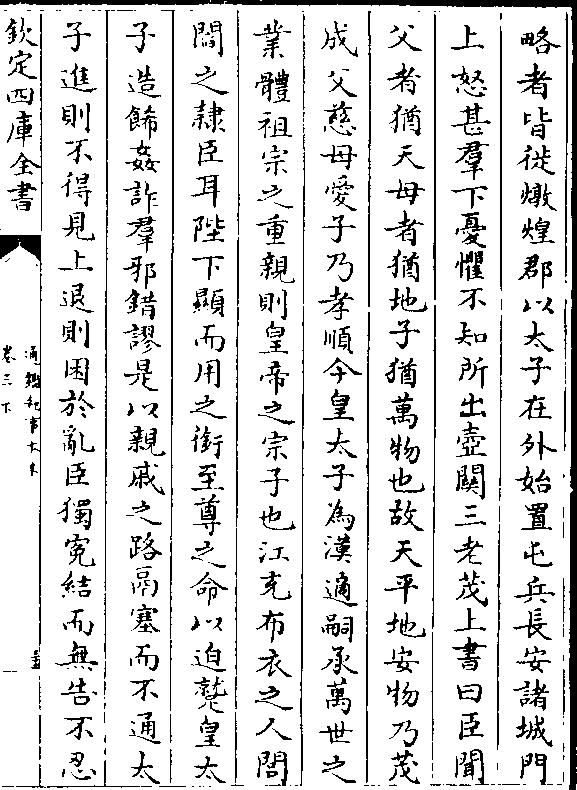 略者皆徙燉煌郡以太子在外始置屯兵長安諸城門
上怒甚羣下憂懼不知所出壺關三老茂上書曰臣聞
父者猶天母者猶地子猶萬物也故天平地安物乃茂
成父慈母愛子乃孝順今皇太子為漢適嗣承萬世之
業體祖宗之重親則皇帝之宗子也江充布衣之人閭
閻之隷臣耳陛下顯而用之銜至尊之命以迫蹵皇太
子造飾姦詐羣邪錯謬是以親戚之路鬲塞而不通太
子進則不得見上退則困於亂臣獨寃結而無告不忍
欽定四庫全書
通鑑紀事本末
卷三下